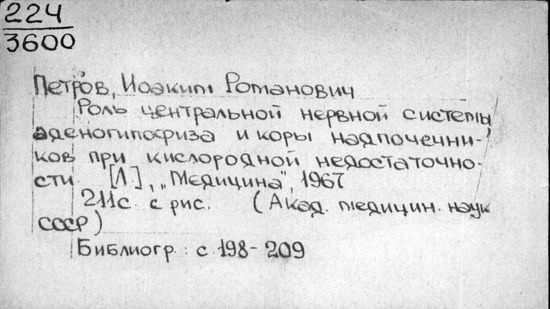 224
3600
Петров, Иоаким Романович
Роль центральной нервной системы,
аденогипофиза и коры надпочечни-
ков при кислородной недостаточно-
сти. [Л], „Медицина", 1967
211 с. с рис. (Акад. медицин. наук
СССР)
Библиогр : с. 198-209